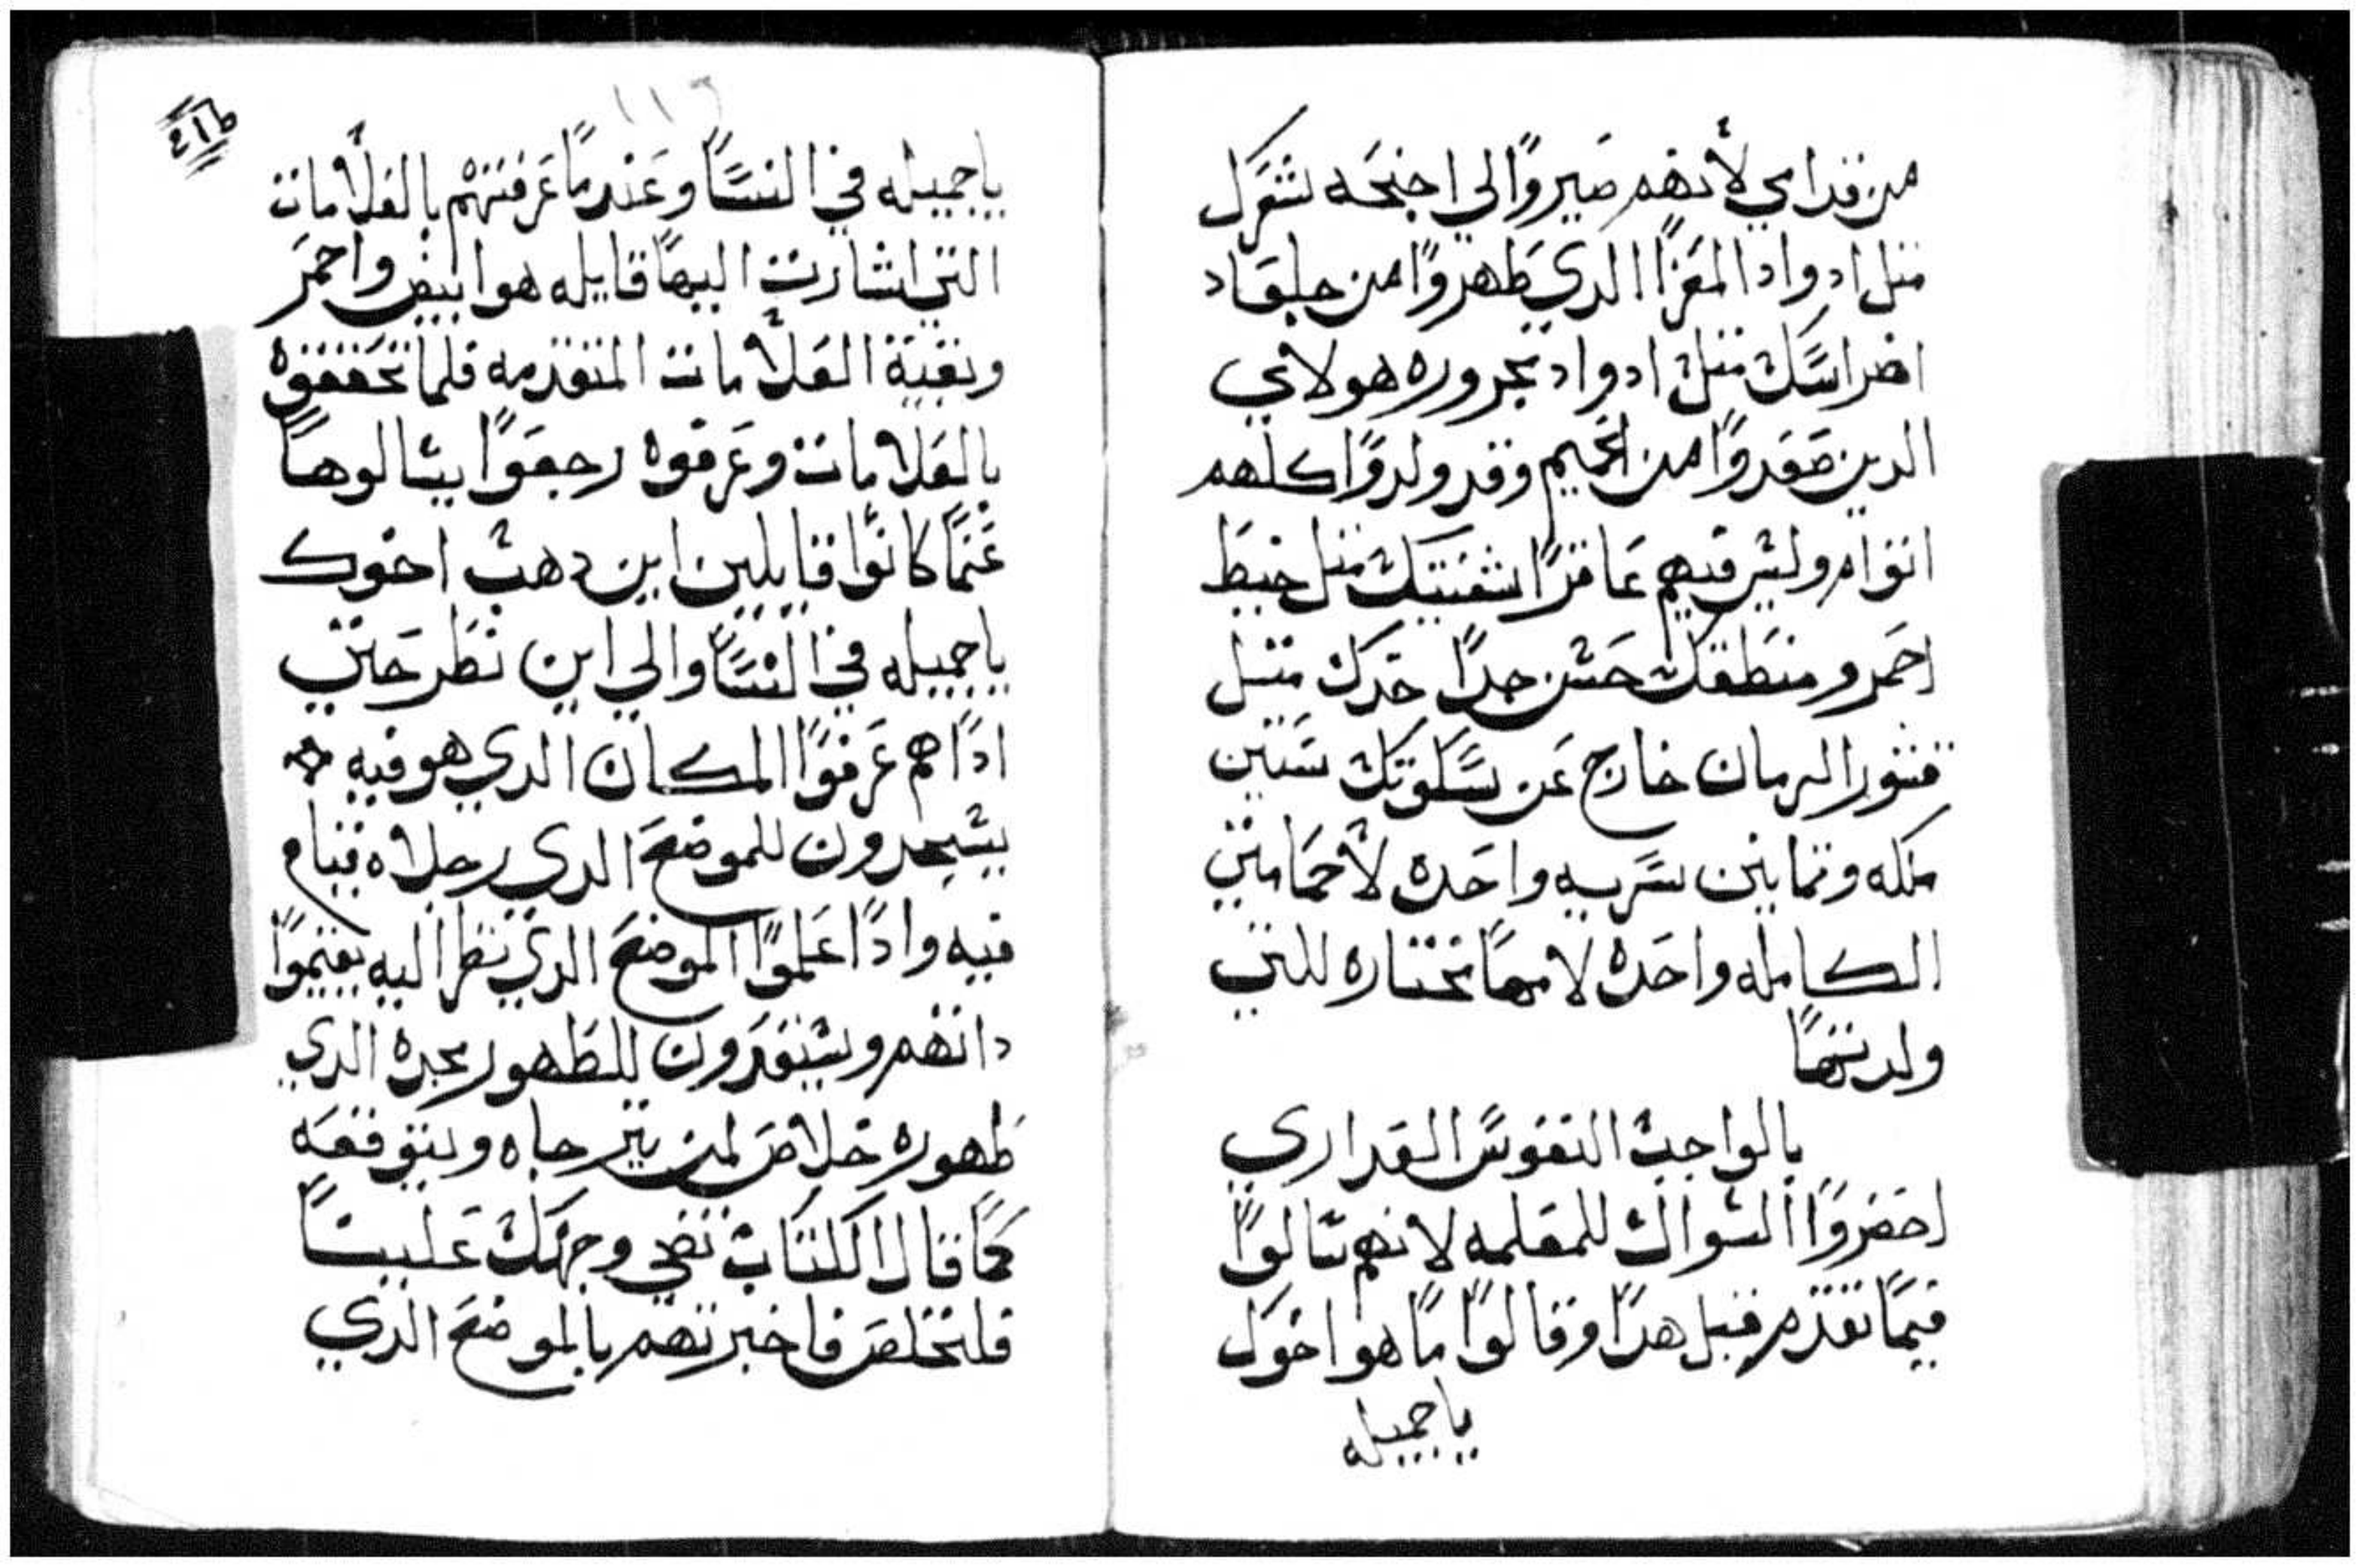 من قدامي لأنهم صيروا الي اجنحه شعرك
متل ادواد المعزا الدي ظهروا من جلعاد
اضراسك متل ادواد مجروره هولاي
الدين صعدوا من الحميم وقد ولدوا كلهم
اتوام وليس فيهم عاقرا شفتيك متل خيط
احمر ومنطقك حسن جدا خدك متل
قشور الرمان خارج عن سكوتك ستين
ملكه وتمانين سريه واحده لأ حمامتي
الكامله واحده لامها مختاره للتي
ولدتها
بالواجب النفوس العداري
احضروا السوال للمعلمه لانهم سالوا
فيما تقدم قبل هدا وقالوا ما هو اخوك
يا جميله
٤١٦
يا جميله في النسا وعندما عرفتهم بالعلامات
التي اشارت اليها قايله هو ابيض واحمر
وبقية العلامات المتقدمه فلما تحققوه
بالعلامات وعرفوه رجعوا يسالوها
عنما كانوا قايلين اين دهب اخوك
يا جميله في النسا والي اين نظر حتي
ادا هم عرفوا المكان الدي هو فيه
يسجدون للموضع الدي رجلاه قيام
فيه وادا علموا الموضع الدي نظر اليه يقيموا
داتهم ويستعدون للظهور مجده الدي
ظهوره خلاص لمن يترجاه ويتوقعه
كما قال الكتاب تضي وجهك علينا
فلنخلص فاخبرتهم بالموضع الدي